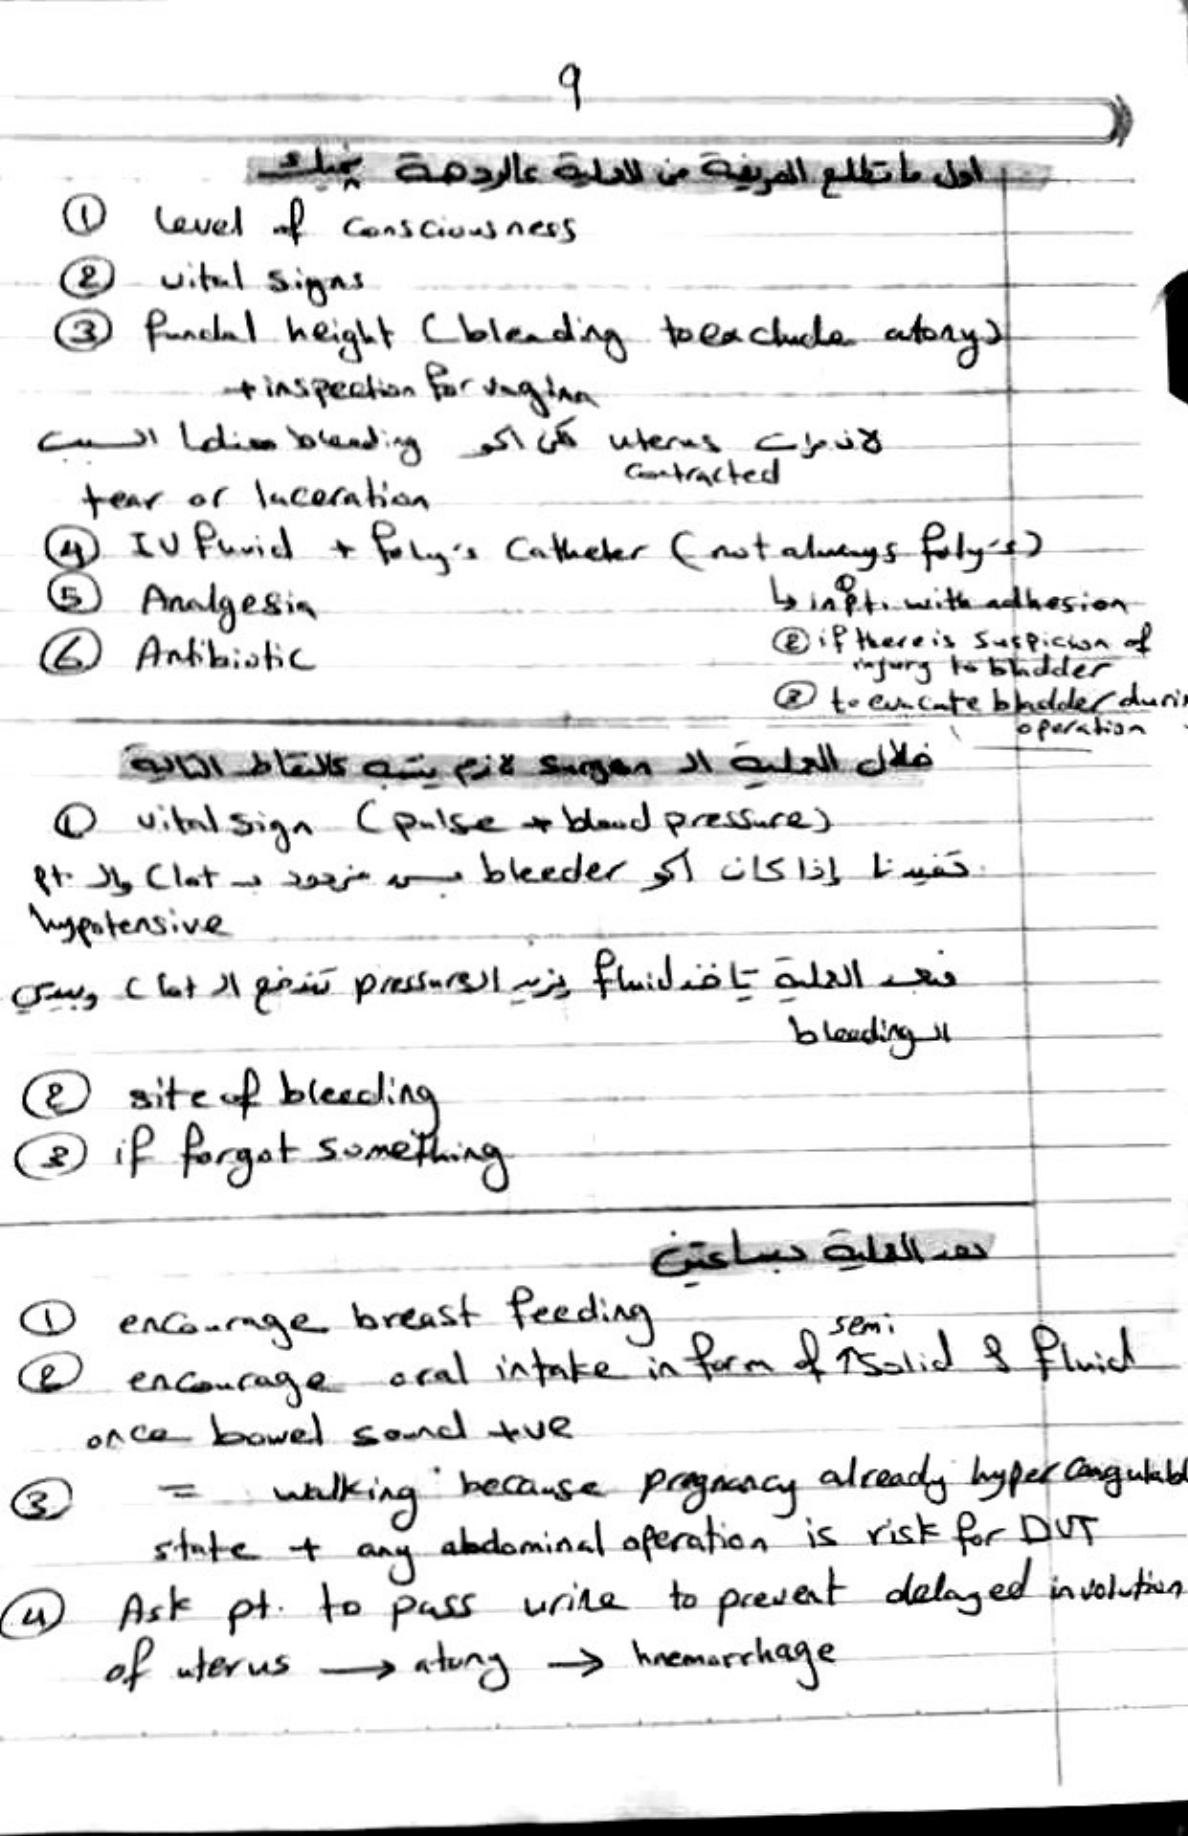 9
اول ما تطلع المريضة من العملية عالردهة يهمك
① level of consciousness
② vital signs
③ fundal height (bleeding to exclude atony)
+ inspection for vagina
لانه مرات uterus contracted لكن اكو bleeding عندها السبب
tear or laceration
④ IV fluid + foly's catheter (not always foly's)
↳ ① in pt. with adhesion
② if there is suspicion of
injury to bladder
③ to evacate bladder durin
operation
⑤ Analgesia
⑥ Antibiotic
خلال العملية الـ surgon لازم ينتبه كالنقاط التالية
① vital sign (pulse + blood pressure)
تفيدنا إذا كان اكو bleeder بس مزدود بـ clot والـ pt.
hypotensive
فبعد العملية تاخذ fluid يزيد الـ pressure تندفع الـ clot ويبدي
الـ bleeding
② site of bleeding
③ if forgot something
بعد العملية بساعتين
① encourage breast feeding
② encourage oral intake in form of ↑ semi solid & fluid
once bowel sound +ve
③ = walking because pregnancy already hyper coagulabl
state + any abdominal operation is risk for DVT
④ Ask pt. to pass urine to prevent delayed involution
of uterus → atony → haemorrhage